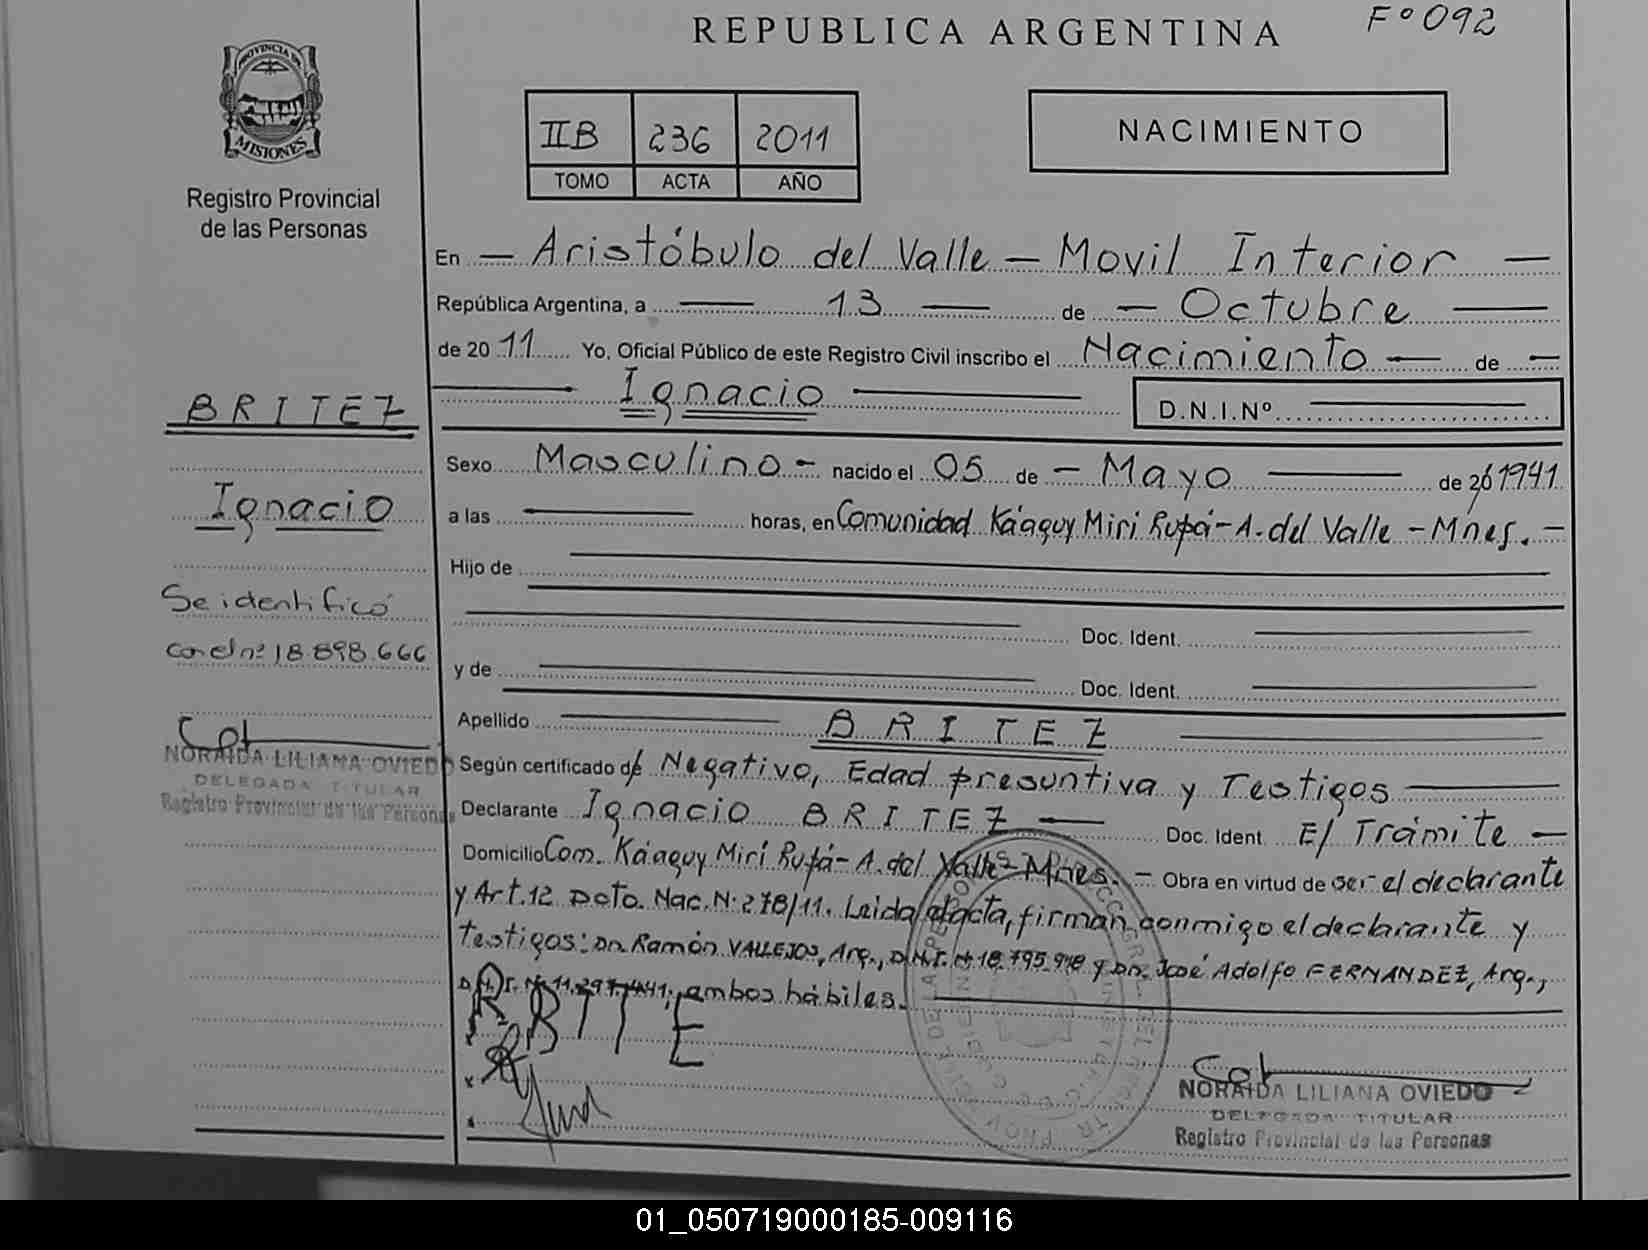 REPUBLICA ARGENTINA
Fº 092
PROVINCIA DE
MISIONES
Registro Provincial
de las Personas
IIB 236 2011
TOMO ACTA AÑO
NACIMIENTO
En — Aristóbulo del Valle — Movil Interior —
República Argentina, a — 13 — de — Octubre —
de 20 11 Yo, Oficial Público de este Registro Civil inscribo el Nacimiento — de —
— Ignacio — D.N.I.Nº —
BRITEZ
Sexo Masculino — nacido el 05 de — Mayo — de 20 1941
Ignacio
a las — horas, en Comunidad Ká'aguy Miri Rupá - A. del Valle - Mnes. —
Hijo de
Se identificó
Doc. Ident.
con el nº 18.898.666
y de
Doc. Ident.
Apellido — BRITEZ —
NORAIDA LILIANA OVIEDO
DELEGADA TITULAR
Registro Provincial de las Personas
Según certificado de Negativo, Edad presuntiva y Testigos —
Declarante Ignacio BRITEZ — Doc. Ident. E/ Trámite —
Domicilio Com. Ká'aguy Mirí Rupá - A. del Valle - Mnes. — Obra en virtud de ser el declarante
y Art. 12 Dcto. Nac. Nº 278/11. Leida el acta, firman conmigo el declarante y
testigos: Dn. Ramón VALLEJOS, Arg., D.N.I. Nº 18.795.948 y Dn. José Adolfo FERNANDEZ, Arg.,
D.N.I. Nº 11.297.441, ambos hábiles.
BRITE
NORAIDA LILIANA OVIEDO
DELEGADA TITULAR
Registro Provincial de las Personas
01_050719000185-009116